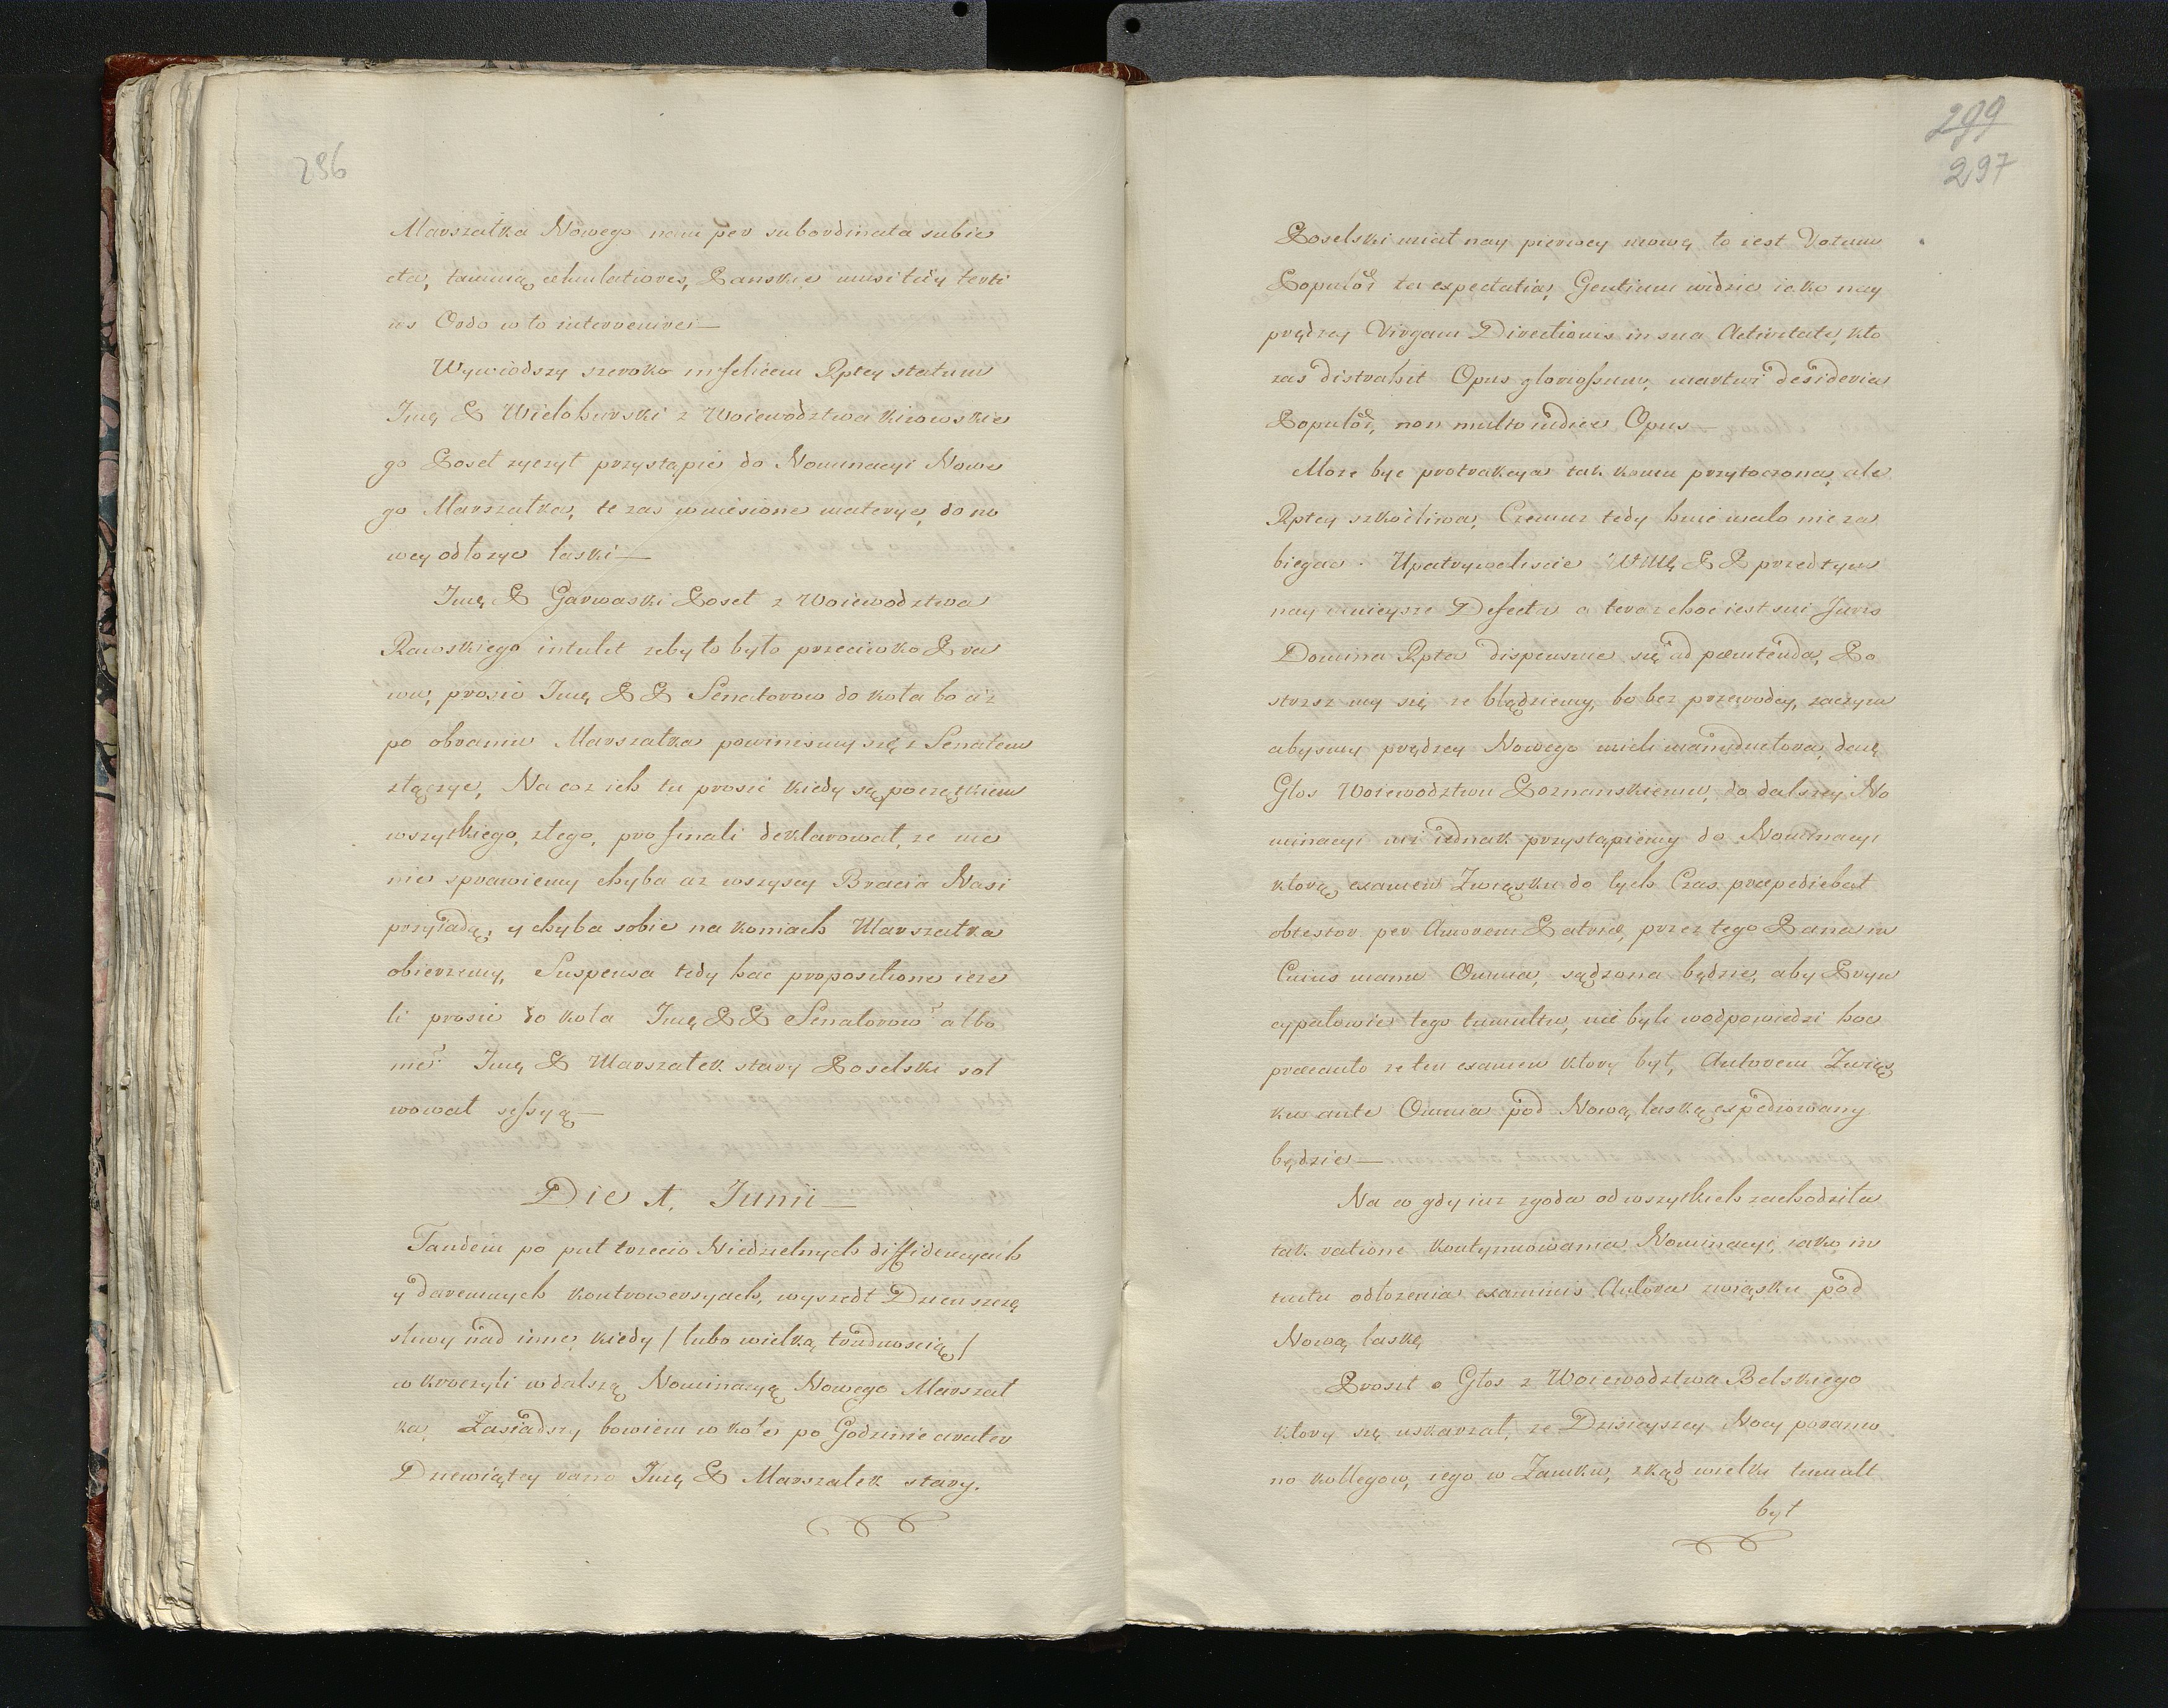 296
Marszałka Nowego nam per subordinata subie
cta, tamują æmulatores, Panskie musi tedy terti
us Ordo w to intervenire —
Wywiodszy szeroko infelicem Rptey statum
Jmę P Wielohurski z Woiewodztwa Kiiowskie
go Poseł zyczył przystąpic do Nominacyi Nowe
go Marszałka, te zas wniesione materye, do no
wey odłozyc laski —
Jmę P Garwaski Poseł z Woiewodztwa
Rawskiego intulit zeby to było przeciwko Pra
wu, prosic Jmę P P Senatorow do koła bo az
po obraniu Marszałka powinismy się z Senatem
złączyc, Na coz ich tu prosic kiedy są początkiem
wszytkiego, złego, pro finali deklarował, ze nic
nie sprawiemy chyba az wszyscy Bracia Nasi
przyiadą, y chyba sobie na koniach Marszałka
obierzemy, Suspensa tedy hac propositione ieze
li prosic do koła Jmę P P Senatorow? albo
nie? Jmę P Marszałek stary Poselski sol
wował sessyą —
Die 1. Junii —
Tandem po puł trzecia Niedzielnych diffidencyach
y daremnych kontrowersyach, wyszedł Dzien szczę
sliwy nad inne, kiedy / lubo wielką trudnoscią /
wkroczyli w dalszą Nominacyą Nowego Marszał
ka, Zasiadszy bowiem w kole po Godzinie circiter
Dziewiątey rano Jmę P Marszałek stary.
299
297
Poselski miał nay pierwey mowę to iest Votum
Populor ta expectatia, Gentium widziec iako nay
prędzey Virgam Directionis in sua Activitate, kto
zas distrahit Opus gloriossum, martwi desideria
Populor, non multo indiet Opus —
Moze byc protrakcya tak komu przytoczona, ale
Rptey szkodliwa, Czemuz tedy huic malo nie za
biegac. Upatrywaliscie WMę P P przedtym
nay mnieysze Defecta a teraz choc iest sui Juris
Domina Rpta dispensuie się ad pœnitenda, Po
strzez my się ze błądziemy, bo bez przewodcy, zaczym
abysmy prędzey Nowego mieli manuductora, daię
Głos Woiewodztwu Poznanskiemu, do dalszey No
minacyi niz iednak przystąpiemy do Nominacyi
ktorą, examen Związku do tych Czas præpediebat
obtestor per Amorem Patriæ, przez tego Pana in
Cuius manu Omnia, sądzona będzie, aby Pryn
cypałowie tego tumultu, nie byli w odpowiedzi hoc
præcauto ze ten examen ktory był, Autorem Związ
ku ante Omnia pod Nową laską expediowany
będzie —
Na co gdy iuz zgoda od wszytkich zachodziła
tak ratione kontynuowania Nominacyi, iako in
tuitu odłozenia examinis Autora związku pod
Nową laskę
Prosił o Głos z Woiewodztwa Belskiego
ktory się uskarzał, ze Dzisieyszey Nocy poranio
no kollegow, iego w Zamku, zkąd wielki tumult
był